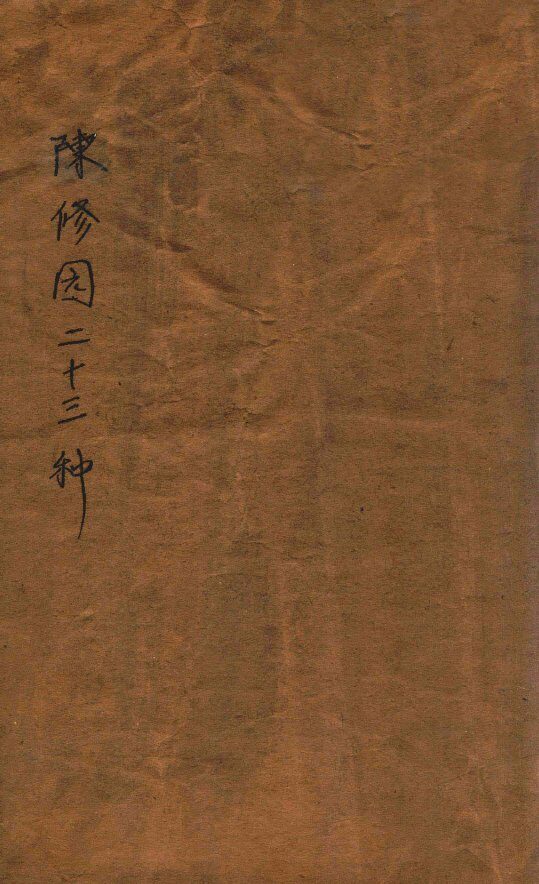 陳修园二十三种